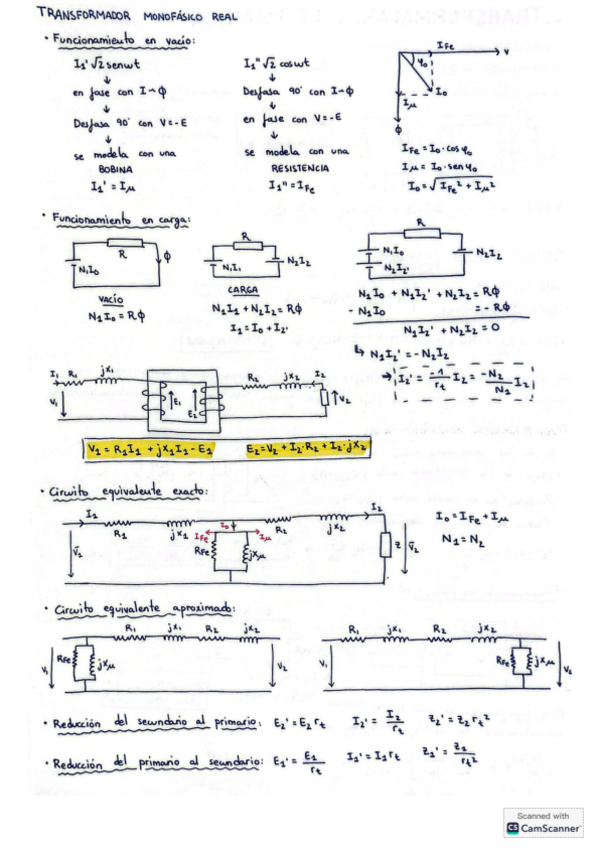 TRANSFORMADOR MONOFÁSICO REAL
• Funcionamiento en vacío:
I₁'√2 senωt
en fase con I→Φ
Desfasa 90° con V=-E
se modela con una
BOBINA
I₁' = Iμ
I₁''√2 cosωt
Desfasa 90° con I→Φ
en fase con V=-E
se modela con una
RESISTENCIA
I₁'' = I_Fe
I_Fe V
φ₀
I₀
Iμ
Φ
I_Fe = I₀·cosφ₀
Iμ = I₀·senφ₀
I₀ = √(I_Fe² + Iμ²)
• Funcionamiento en carga:
R
N₁I₀
Φ
VACÍO
N₁I₀ = RΦ
R
N₁I₁ N₂I₂
CARGA
N₁I₁ + N₂I₂ = RΦ
I₁ = I₀ + I₂'
R
N₁I₀
N₁I₂'
N₂I₂
N₁I₀ + N₁I₂' + N₂I₂ = RΦ
- N₁I₀ = - RΦ
N₁I₂' + N₂I₂ = 0
↳ N₁I₂' = -N₂I₂
→ I₂' = -1/rt I₂ = -N₂/N₁ I₂
I₁ R₁ jX₁ R₂ jX₂ I₂
V₁ E₁ E₂ V₂
V₁ = R₁I₁ + jX₁I₁ - E₁ E₂ = V₂ + I₂·R₂ + I₂·jX₂
• Circuito equivalente exacto:
I₁ R₁ jX₁ I₀ R₂ jX₂ I₂
I_Fe Iμ
V₂ R_Fe jXμ Z V₂
I₀ = I_Fe + Iμ
N₁ = N₂
• Circuito equivalente aproximado:
R₁ jX₁ R₂ jX₂
V₁ R_Fe jXμ V₂
R₁ jX₁ R₂ jX₂
V₁ R_Fe jXμ V₂
• Reducción del secundario al primario: E₂' = E₂ rt I₂' = I₂/rt Z₂' = Z₂ rt²
• Reducción del primario al secundario: E₁' = E₁/rt I₁' = I₁ rt Z₁' = Z₁/rt²
Scanned with
CS CamScanner